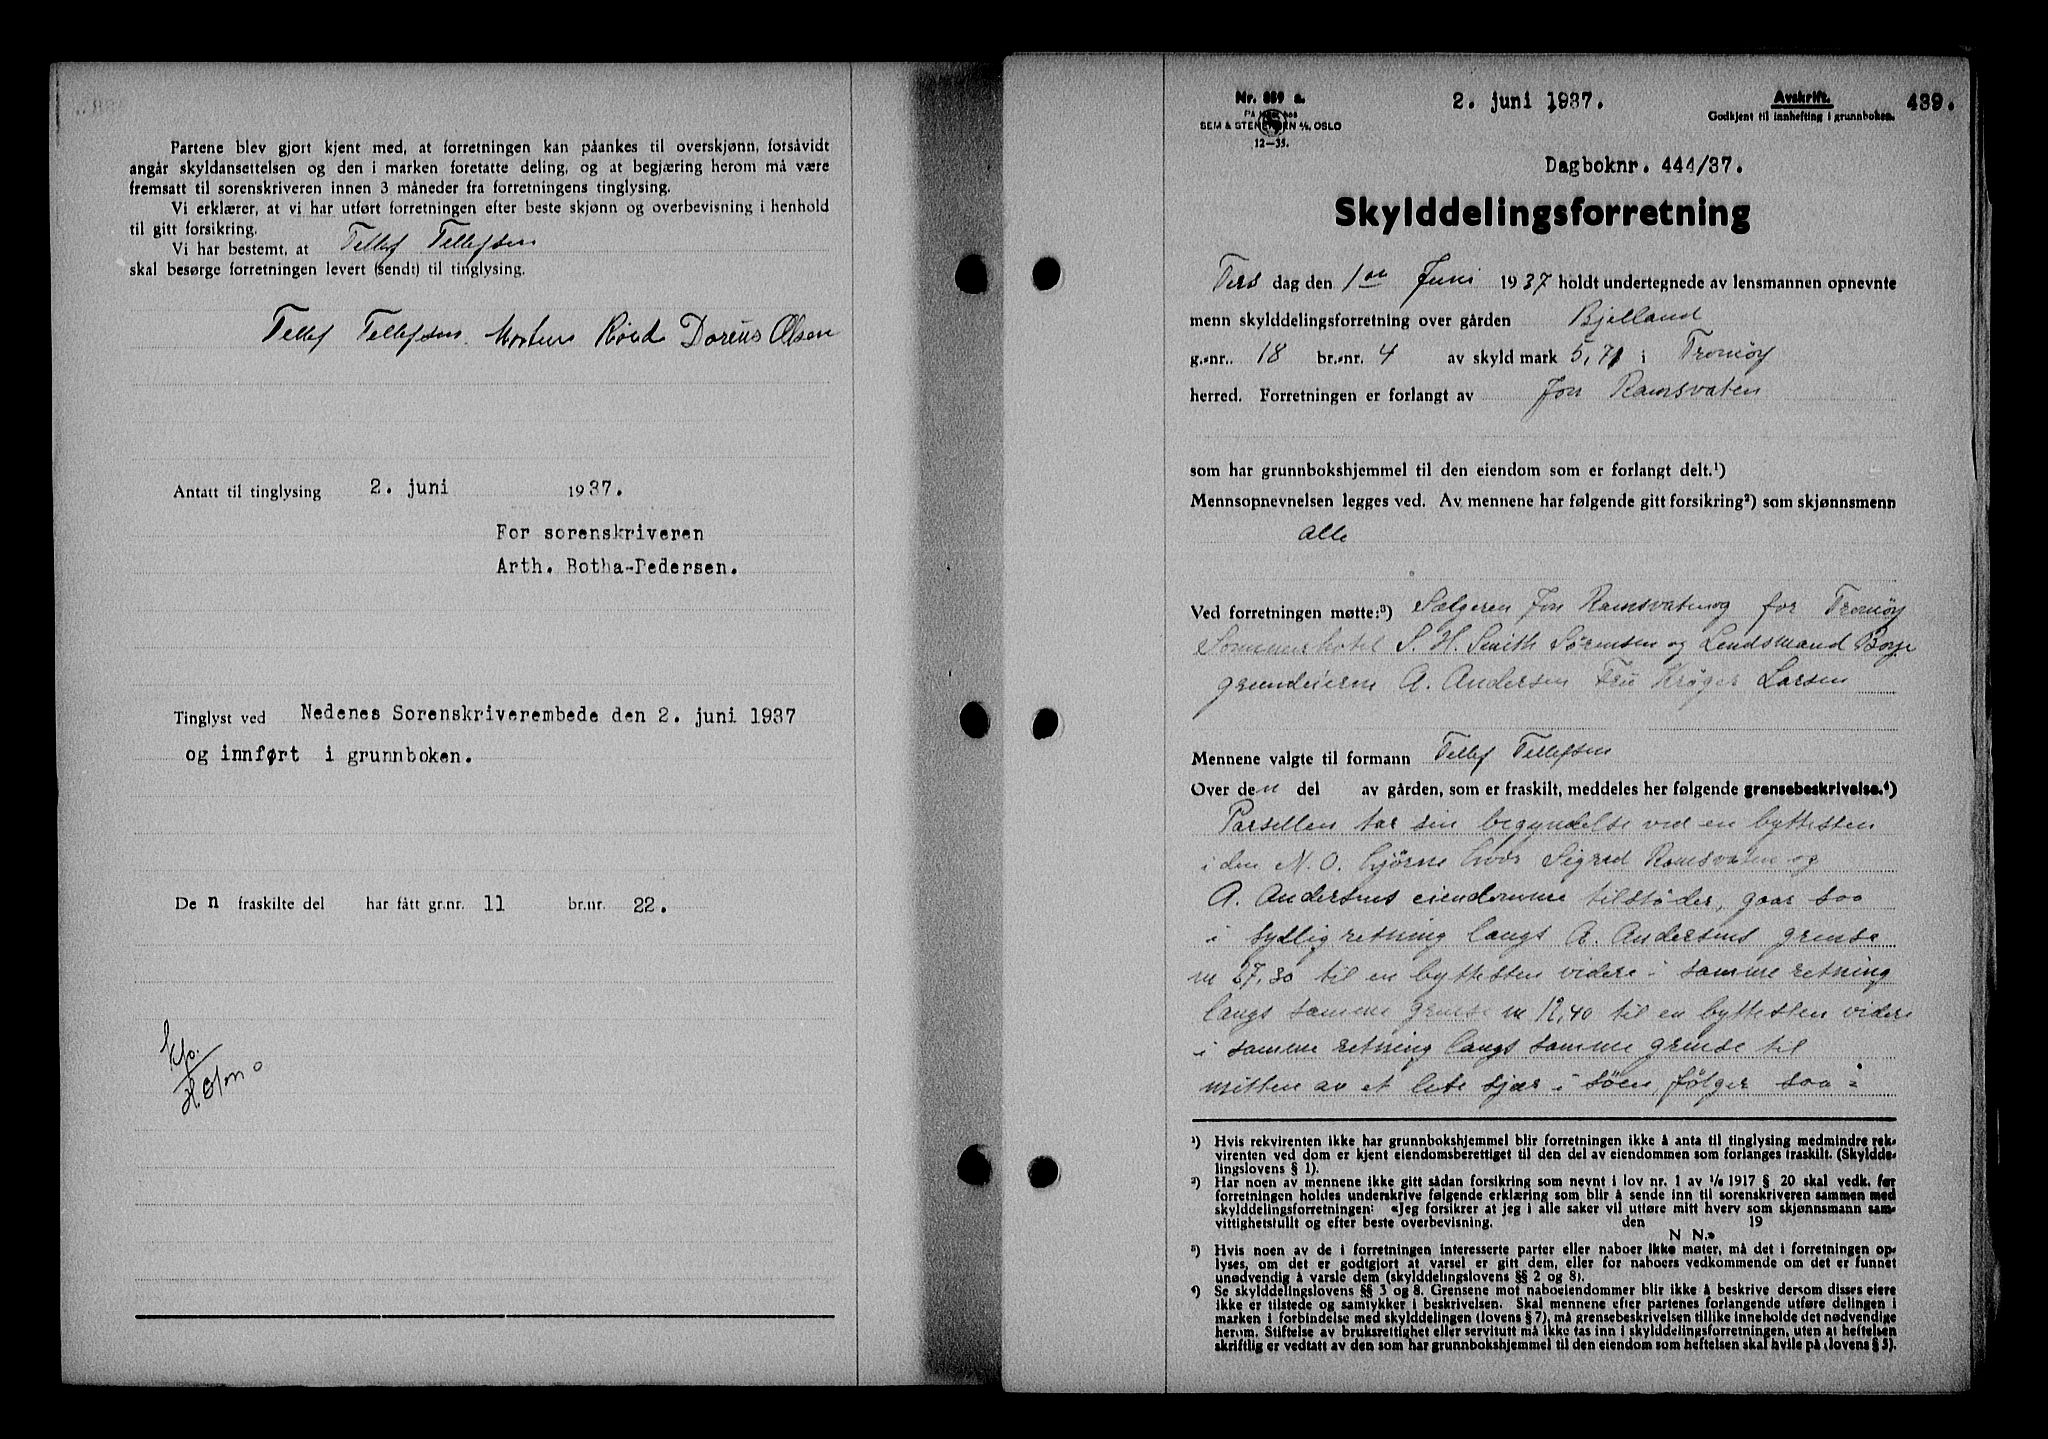 Partene blev gjort kjent med, at forretningen kan påankes til overskjønn, forsåvidt
angår skyldansettelsen og den i marken foretatte deling, og at begjæring herom må være
fremsatt til sorenskriveren innen 3 måneder fra forretningens tinglysing.
Vi erklærer, at vi har utført forretningen efter beste skjønn og overbevisning i henhold
til gitt forsikring.
Vi har bestemt, at Tellef Tellefsen
skal besørge forretningen levert (sendt) til tinglysing.
Tellef Tellefsen. Morten Røed Doreus Olsen
Antatt til tinglysing 2. juni 1937.
For sorenskriveren
Arth. Botha-Pedersen.
Tinglyst ved Nedenes Sorenskriverembede den 2. juni 1937
og innført i grunnboken.
Den fraskilte del har fått gr.nr. 11 br.nr. 22.
Nr. 889 a.
SEM & STENERSEN A/S OSLO
12-35.
2. juni 1937.
Avskrift.
Godkjent til innhefting i grunnboken.
439.
Dagboknr. 444/37.
Skylddelingsforretning
Tirsdag den 1ste Juni 1937 holdt undertegnede av lensmannen opnevnte
menn skylddelingsforretning over gården Bjelland
g.-nr. 18 br.-nr. 4 av skyld mark 5,71 i Tromøy
herred. Forretningen er forlangt av Jon Ramsvaten
som har grunnbokshjemmel til den eiendom som er forlangt delt.¹)
Mennsopnevnelsen legges ved. Av mennene har følgende gitt forsikring²) som skjønnsmenn
alle
Ved forretningen møtte:³) Sælgeren Jon Ramsvaten og for Tromøy
Sommerhotel S. H. Smith Sørensen og Lendsmand Borge
grundeierne A. Andersen Fru Krøger Larsen
Mennene valgte til formann Tellef Tellefsen
Over den del av gården, som er fraskilt, meddeles her følgende grensebeskrivelse.⁴)
Parsellen tar sin begyndelse ved en byttesten
i den N.O. hjørne hvor Sigred Ramsvaten og
A. Andersens eiendomme tilstøder, gaar saa
i sydlig retning langs A. Andersens grense
m 27,30 til en byttesten videre i samme retning
langs samme grense m 12,40 til en byttesten videre
i samme retning langs samme grense til
mitten av et lite sjær i søen, følger saa
¹) Hvis rekvirenten ikke har grunnbokshjemmel blir forretningen ikke å anta til tinglysing medmindre rek-
virenten ved dom er kjent eiendomsberettiget til den del av eiendommen som forlanges fraskilt. (Skyldde-
lingslovens § 1).
²) Har noen av mennene ikke gitt sådan forsikring som nevnt i lov nr. 1 av 1/6 1917 § 20 skal vedk. før
forretningen holdes underskrive følgende erklæring som blir å sende inn til sorenskriveren sammen med
skylddelingsforretningen: «Jeg forsikrer at jeg i alle saker vil utføre mitt hverv som skjønnsmann sam-
vittighetsfullt og efter beste overbevisning. den 19
N N.»
³) Hvis noen av de i forretningen interesserte parter eller naboer ikke møter, må det i forretningen op-
lyses, om det er godtgjort at varsel er gitt dem, eller for naboers vedkommende om det er funnet
unødvendig å varsle dem (skylddelingslovens §§ 2 og 8).
⁴) Se skylddelingslovens §§ 3 og 8. Grensene mot naboeiendommer blir ikke å beskrive dersom disses eiere
ikke er tilstede og samtykker i beskrivelsen. Skal mennene efter partenes forlangende utføre delingen i
marken i forbindelse med skylddelingen (lovens § 7), må grensebeskrivelsen tillike inneholde det nødvendige
herom. Stiftelse av bruksrettighet eller servitutt må ikke tas inn i skylddelingsforretningen, uten at heftelsen
skriftlig er vedtatt av den som har grunnbokshjemmel til den eiendom som heftelsen skal hvile på (lovens § 5).